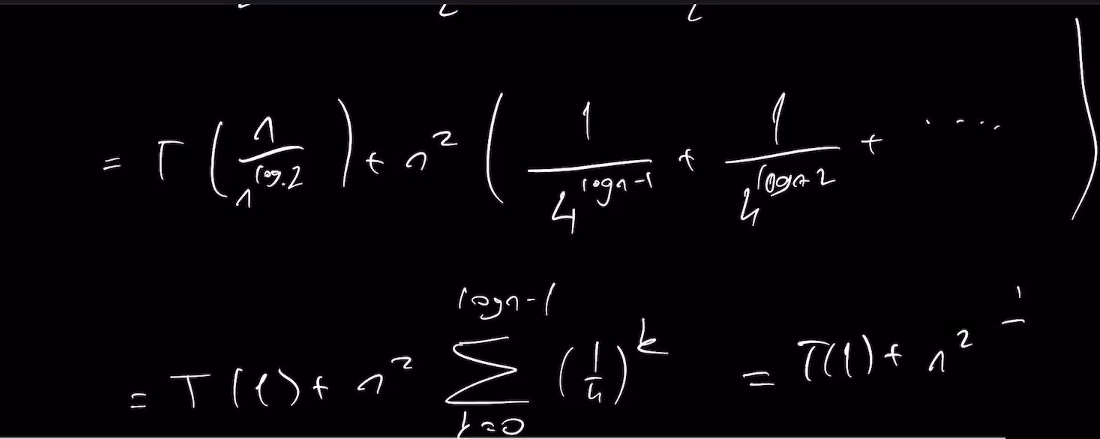 = T ( n / n^log.2 ) + n² ( 1 / 4^logn-1 + 1 / 4^logn-2 + ..... )
= T(1) + n² ∑_{k=0}^{logn-1} (1/4)^k = T(1) + n² 1/